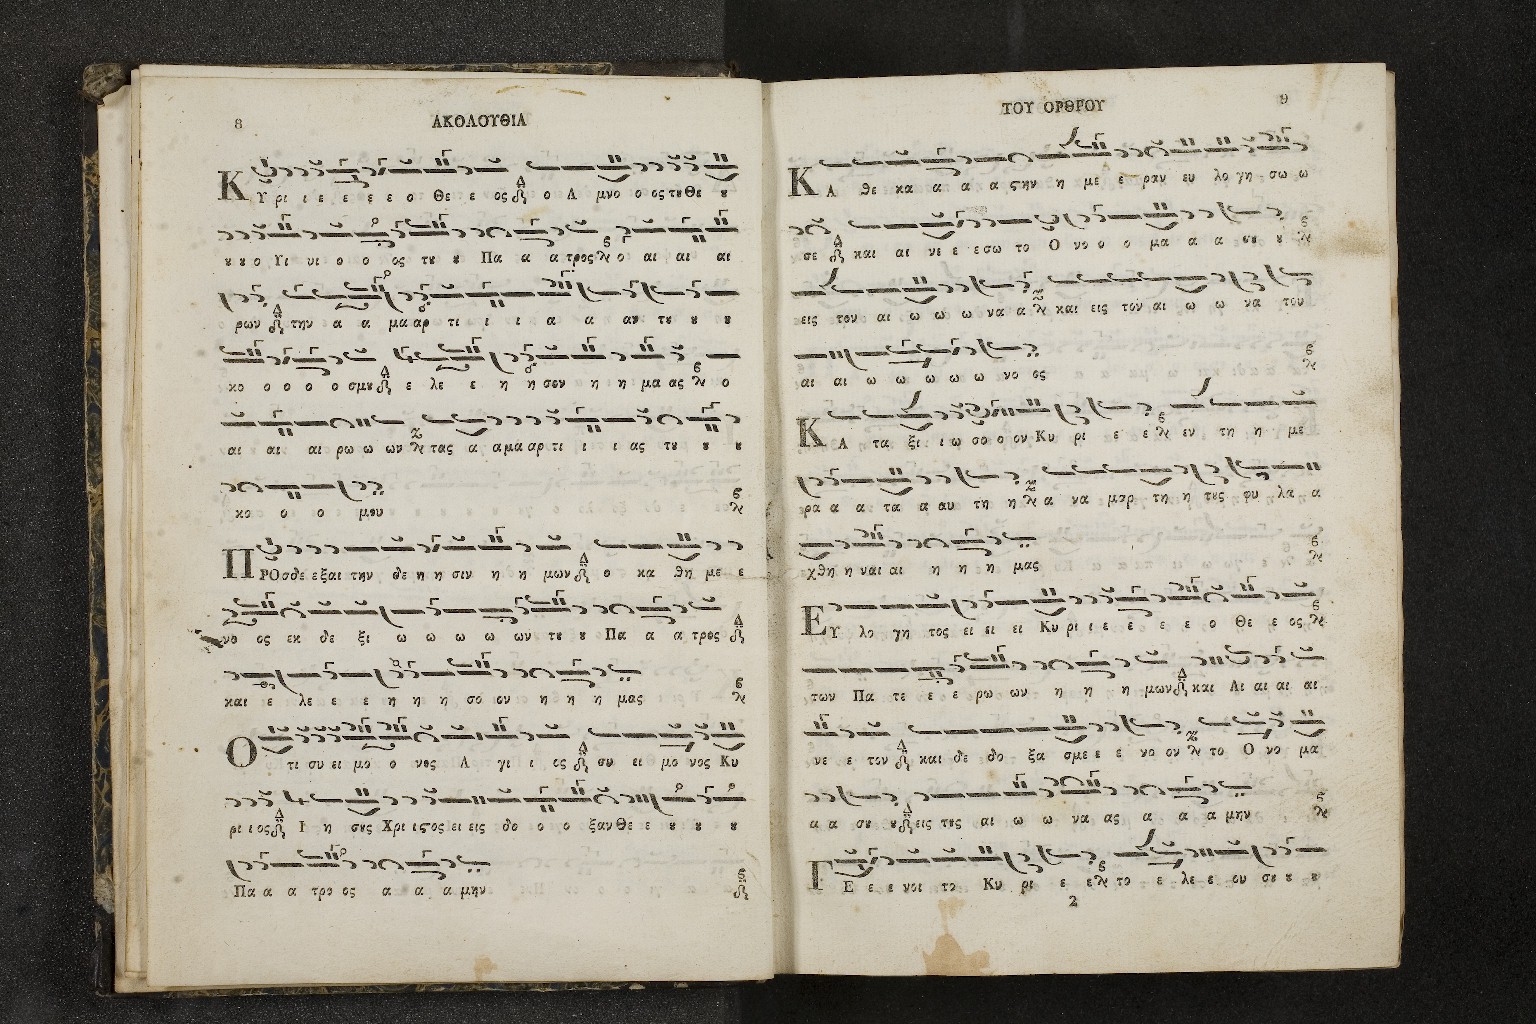 8
ΑΚΟΛΟΥΘΙΑ
ΚΥ ρι ι ε ε ε ε ο Θε ε ος ο Α μνο ο ος τȣ Θε ȣ
ȣ ȣ ο Υι υι ο ο ος τȣ ȣ Πα α α τρος ο αι αι αι
ρων την α α μα αρ τι ι ι α α αν τȣ ȣ ȣ
κο ο ο ο ο σμȣ ε λε ε η η σον η η μα ας ο
αι αι αι ρω ω ων τας α αμα αρ τι ι ι ας τȣ ȣ ȣ
κο ο ο μου
ΠΡΟσδε εξαι την δε η η σιν η η μων ο κα θη με ε
νο ος εκ δε ξι ω ω ω ω ων τȣ ȣ Πα α α τρος
και ε λε ε ε η η η σο ον η η η μας
Ο τι συ ει μο ο νος Α γι ι ος συ ει μο νος Κυ
ρι ι ος Ι η σȣς Χρι ιϛος ει εις δο ο ο ξαν Θε ε ȣ ȣ ȣ
Πα α α τρο ος α α α μην
ΤΟΥ ΟΡΘΡΟΥ
9
ΚΑ θε κα α α α ϛην η με ε ραν ευ λο γη σω ω
σε και αι νε ε εσω το Ο νο ο ο μα α α σȣ ȣ
εις τον αι ω ω ω να α και εις τον αι ω ω να του
αι αι ω ω ω ω ω νο ος
ΚΑ τα ξι ι ω σο ο ον Κυ ρι ε ε εν τη η με
ρα α α τα α αυ τη η α να μαρ τη η τȣς φυ λα α
χθη η ναι αι η η η μας
ΕΥ λο γη τος ει ει ει Κυ ρι ι ε ε ε ε ο Θε ε ος
των Πα τε ε ε ρω ων η η η μων και Αι αι αι αι
νε ε τον και δε δο ξα σμε ε ε νο ον το Ο νο μα
α α σου υ εις τȣς αι ω ω να ας α α α μην
ΓΕ ε ε νοι το Κυ ρι ε ε το ε λε ε ου σȣ ȣ ȣ
2